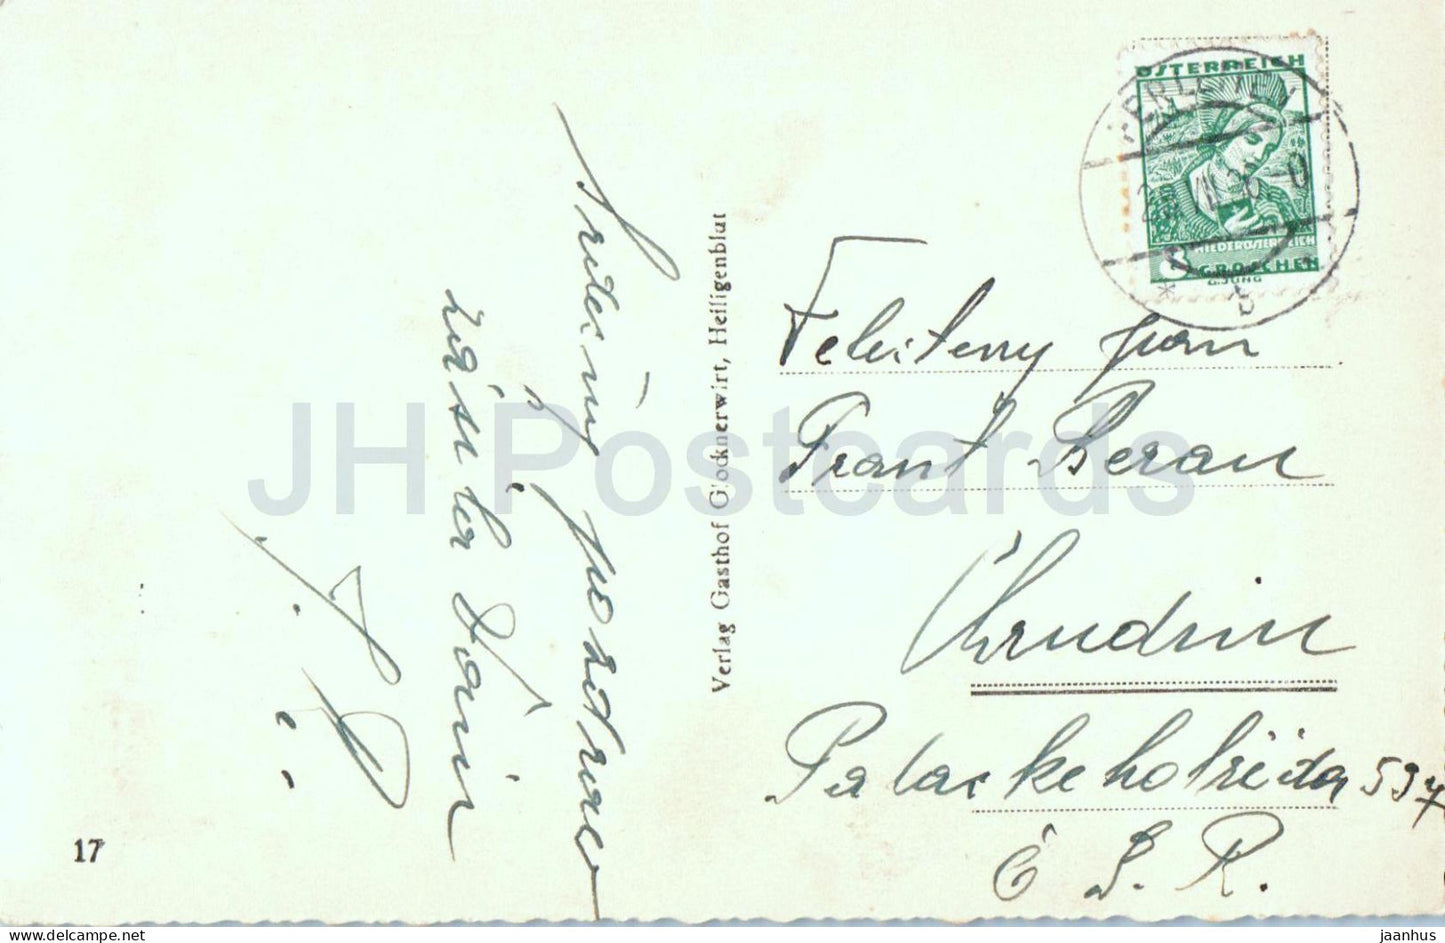 Srdečný pozdrav
zasílá
17
Verlag Gasthof Glocknerwirt, Heiligenblut
ÖSTERREICH
NIEDERÖSTERREICH
8 GROSCHEN
G.JUNG
pan
Frant Beran
Chrudim
Palackého třída 597
Č S. R.
JH Postcards
www.delcampe.net
jaanhus